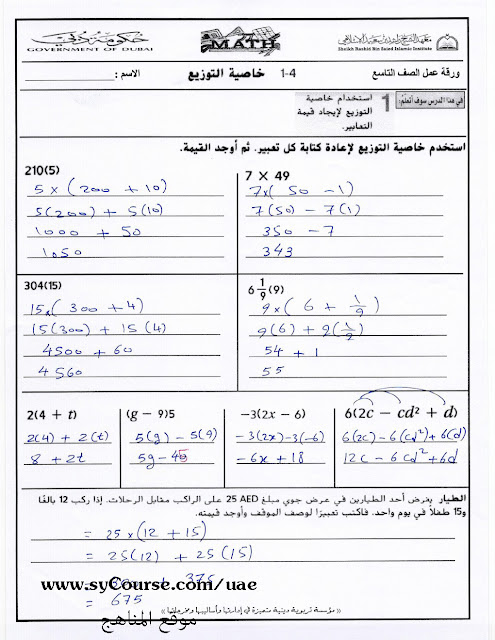 حكومة دبي
GOVERNMENT OF DUBAI
MATH
معهد الشيخ راشد بن سعيد الإسلامي
Sheikh Rashid Bin Saeed Islamic Institute
ورقة عمل الصف التاسع
1-4 خاصية التوزيع
الاسم :
في هذا الدرس سوف أتعلم:
1 استخدام خاصية
التوزيع لإيجاد قيمة
التعابير.
استخدم خاصية التوزيع لإعادة كتابة كل تعبير. ثم أوجد القيمة.
210(5)
5 × (200 + 10)
5(200) + 5(10)
1000 + 50
1050
7 × 49
7×( 50 - 1)
7(50) - 7(1)
350 - 7
343
304(15)
15×( 300 + 4)
15(300) + 15(4)
4500 + 60
4560
6 1/9 (9)
9×( 6 + 1/9 )
9(6) + 9(1/9)
54 + 1
55
2(4 + t)
2(4) + 2(t)
8 + 2t
(g − 9)5
5(g) - 5(9)
5g - 45
−3(2x − 6)
-3(2x)-3(-6)
-6x + 18
6(2c − cd² + d)
6(2c) - 6(cd²) + 6(d)
12c - 6cd² + 6d
الطيار يعرض أحد الطيارين في عرض جوي مبلغ 25 AED على الراكب مقابل الرحلات. إذا ركب 12 بالغًا
و15 طفلاً في يوم واحد. فاكتب تعبيرًا لوصف الموقف وأوجد قيمته.
= 25×(12 + 15)
= 25(12) + 25(15)
+ 375
www.syCourse.com/uae
= 675
موقع المناهج
« مؤسسة تربوية دينية متميزة في إدارتها وأساليبها ومخرجاتها »